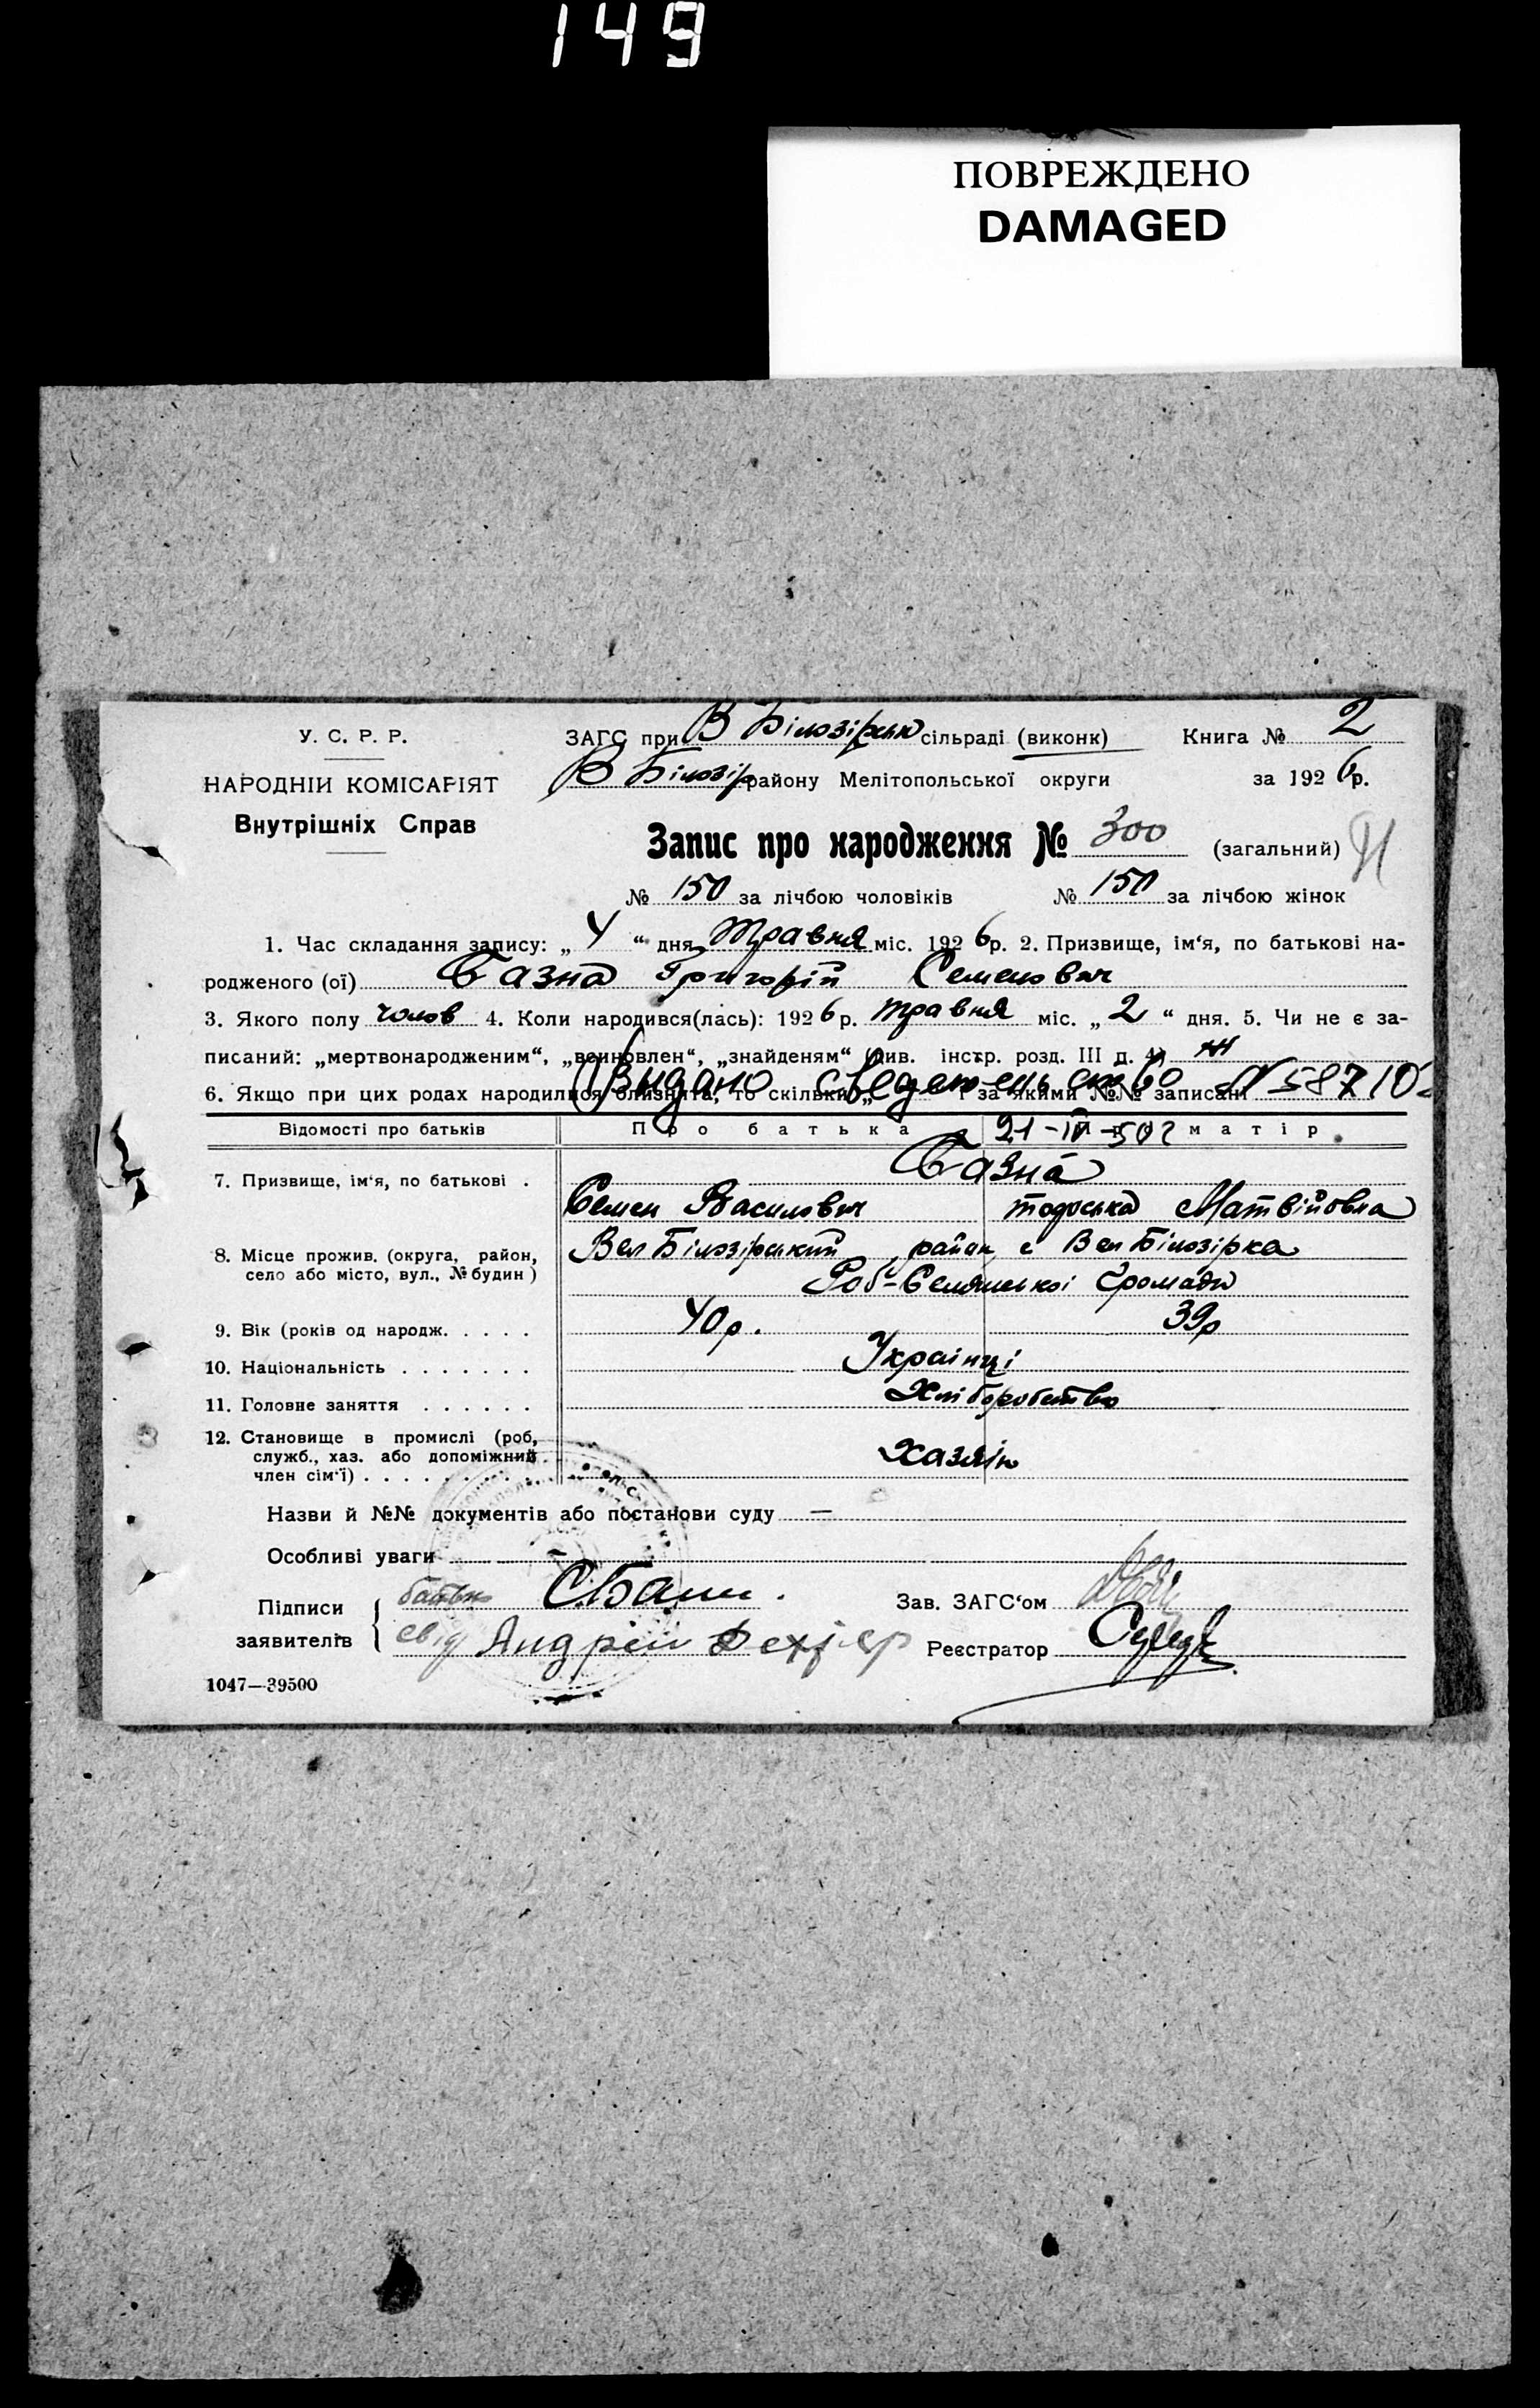 149
ПОВРЕЖДЕНО
DAMAGED
У. С. Р. Р.
НАРОДНІЙ КОМІСАРІЯТ
Внутрішніх Справ
ЗАГС при В Білозірськ сільраді (виконк) Книга № 2
В Білозір району Мелітопольської округи за 1926р.
Запис про народження № 300 (загальний)
№ 150 за лічбою чоловіків № 150 за лічбою жінок
1. Час складання запису: „ 4 “ дня Травня міс. 1926р. 2. Призвище, ім‘я, по батькові на-
родженого (ої) Базна Григорій Семенович
3. Якого полу чолов 4. Коли народився(лась): 1926р. травня міс. „ 2 “ дня. 5. Чи не є за-
писаний: „мертвонародженим“, „всиновлен“, „знайденям“ (див. інстр. розд. III д. 4) ні
6. Якщо при цих родах народилися близнята, то скільки „ і за якими №№ записані
Выдано №58710
21-IV-50г
Відомості про батьків Про батька матір
7. Призвище, ім‘я, по батькові . Базна
Семен Василович тодоська Матвійовна
8. Місце прожив. (округа, район, село або місто, вул., № будин) Вел Білозірський район с Вел Білозірка
Роб-Селянської Громади
9. Вік (років од народж. . . . . 40р. 39р
10. Національність . . . . . . . Українці
11. Головне заняття . . . . . . Хліборобство
12. Становище в промислі (роб, служб., хаз. або допоміжний член сім‘ї) . . . . . . . . Хазяїн
Назви й №№ документів або постанови суду —
Особливі уваги —
Підписи заявителів
батько С.Базн
свід Андрій
Зав. ЗАГС‘ом
Реєстратор
1047—39500